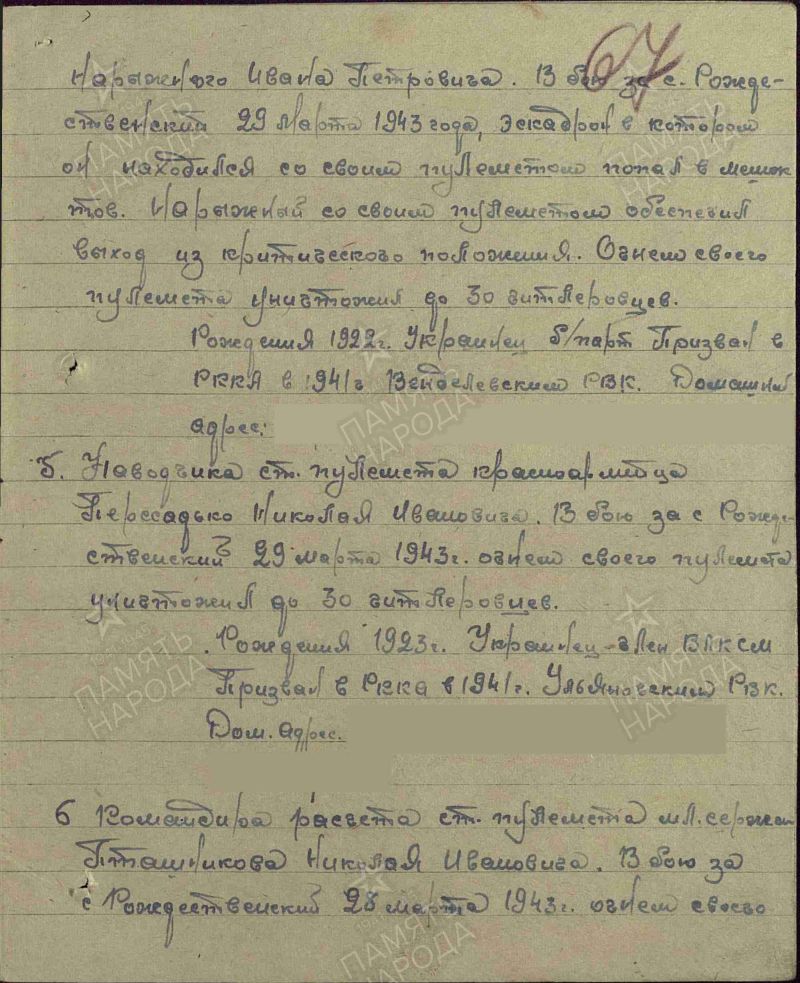 67
Нарыжного Ивана Петровича. В бою за с. Рожде-
ственский 29 марта 1943 года, эскадрон в котором
он находился со своим пулеметом попал в мешок
Нарыжный со своим пулеметом обеспечил
выход из критического положения. Огнем своего
пулемета уничтожил до 30 гитлеровцев.
Рождения 1922г. Украинец б/парт Призван в
РККА в 1941г Вейделевским РВК. Домашний
адрес:
5. Наводчика ст. пулемета красноармейца
Пересадько Николая Ивановича. В бою за с Рожде-
ственский 29 марта 1943г. огнем своего пулемета
уничтожил до 30 гитлеровцев.
Рождения 1923г. Украинец - член ВЛКСМ
Призван в РККА в 1941г. Ульяновским РВК.
Дом. адрес.
6 Командира расчета ст. пулемета мл. сержан
Пташникова Николая Ивановича. В бою за
с Рождественский 28 марта 1943г. огнем своего
ПАМЯТЬ
НАРОДА